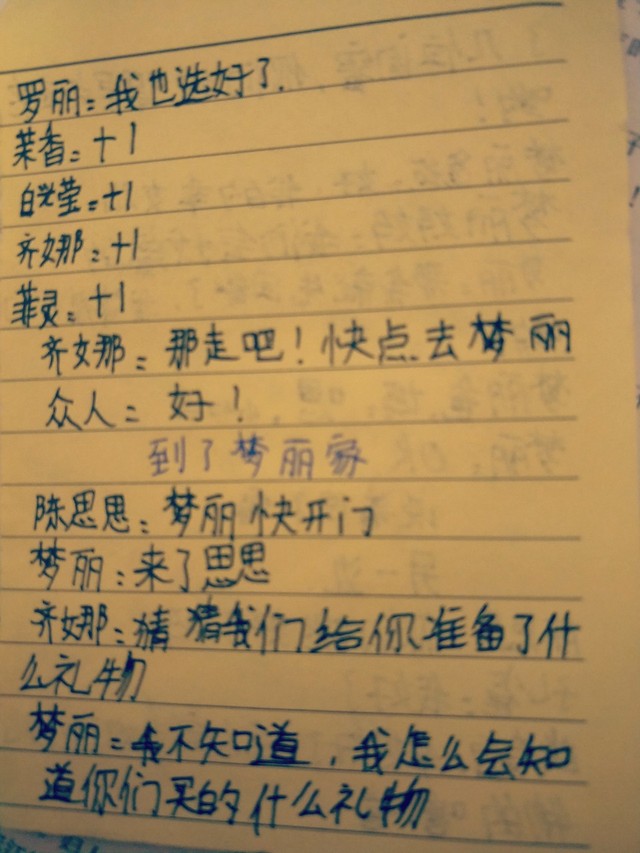 罗丽：我也选好了.
茉香：+1
白光莹：+1
齐娜：+1
菲灵：+1
齐娜：那走吧！快点去梦丽
众人：好！
到了梦丽家
陈思思：梦丽快开门
梦丽：来了思思
齐娜：猜猜我们给你准备了什
么礼物
梦丽：我不知道，我怎么会知
道你们买的什么礼物